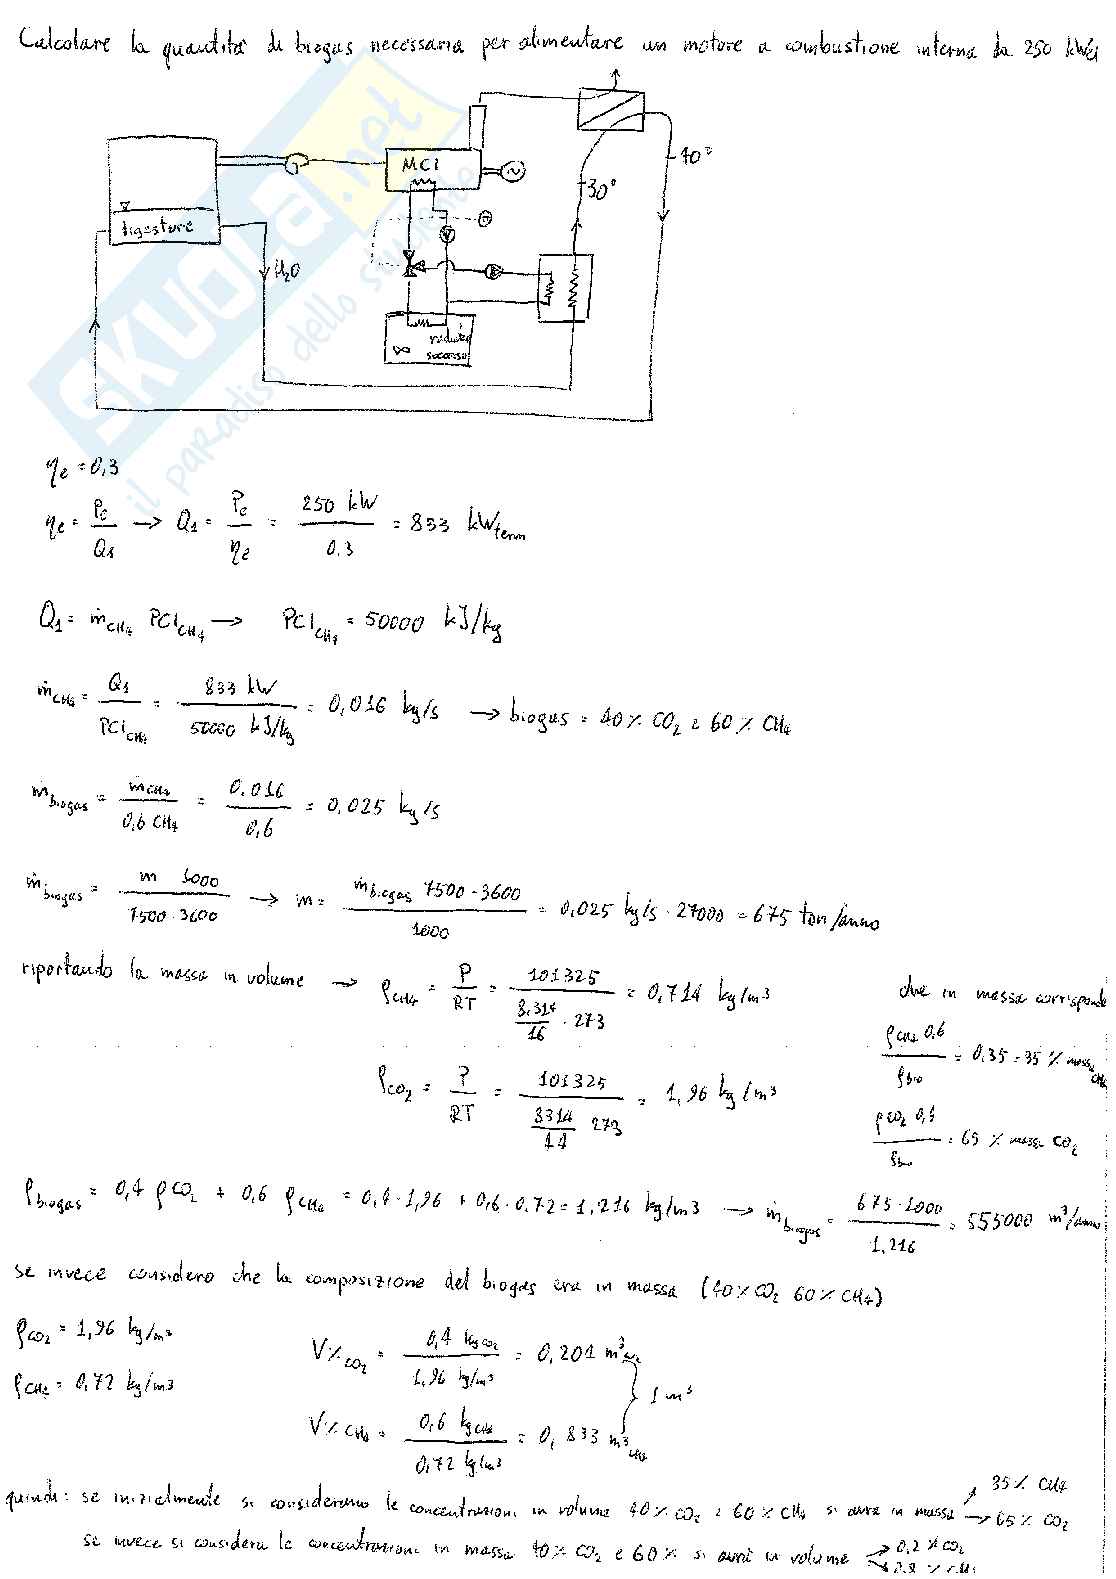 Calcolare la quantità di biogas necessaria per alimentare un motore a combustione interna da 250 kWel
MCI
40°
30°
digestore
H2O
radiatore
soccorso
SKUOLA.net
il paradiso dello studente
ηe = 0,3
ηe = Pe / Q1 → Q1 = Pe / ηe = 250 kW / 0.3 = 833 kWterm
Q1 = ṁCH4 PCICH4 → PCICH4 = 50000 kJ/kg
ṁCH4 = Q1 / PCICH4 = 833 kW / 50000 kJ/kg = 0,016 kg/s → biogas = 40% CO2 e 60% CH4
ṁbiogas = ṁCH4 / 0,6 CH4 = 0.016 / 0,6 = 0,025 kg/s
ṁbiogas = m 1000 / 7500·3600 → m = ṁbiogas 7500·3600 / 1000 = 0,025 kg/s · 27000 = 675 ton/anno
riportando la massa in volume → ρCH4 = P / RT = 101325 / (8,314 / 16 · 273) = 0,714 kg/m3
che in massa corrisponde
ρCH4 0,6 / ρbio = 0,35 = 35% massa CH4
ρCO2 = P / RT = 101325 / (8314 / 44 273) = 1,96 kg/m3
ρCO2 0,4 / ρbio = 65% massa CO2
ρbiogas = 0,4 ρCO2 + 0,6 ρCH4 = 0.4·1,96 + 0,6·0.72 = 1,216 kg/m3 → ṁbiogas = 675·1000 / 1,216 = 555000 m3/anno
se invece considero che la composizione del biogas era in massa (40% CO2 60% CH4)
ρCO2 = 1,96 kg/m3
V%CO2 = 0,4 kgCO2 / 1,96 kg/m3 = 0,204 m3CO2
1 m3
ρCH4 = 0,72 kg/m3
V%CH4 = 0,6 kgCH4 / 0,72 kg/m3 = 0,833 m3CH4
quindi: se inizialmente si considerano le concentrazioni in volume 40% CO2 e 60% CH4 si avrà in massa → 35% CH4
→ 65% CO2
se invece si considera le concentrazioni in massa 40% CO2 e 60% si avrà in volume → 0,2 % CO2
→ 0,8 % CH4